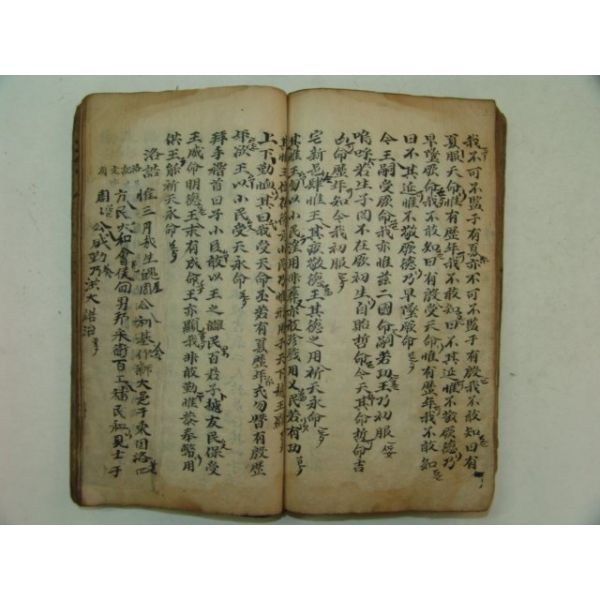 我不可不監于有夏亦不可不監于有殷我不敢知曰有
夏服天命惟有歷年我不敢知曰不其延惟不敬厥德乃
早墜厥命我不敢知曰有殷受天命惟有歷年我不敢知
曰不其延惟不敬厥德乃早墜厥命
今王嗣受厥命我亦惟茲二國命嗣若功王乃初服
嗚呼若生子罔不在厥初生自貽哲命今天其命哲命吉
凶命歷年知今我初服
宅新邑肆惟王其疾敬德王其德之用祈天永命
其惟王勿以小民淫用非彝亦敢殄戮用乂民若有功
其惟王位在德元小民乃惟刑用于天下越王顯
上下勤恤其曰我受天命丕若有夏歷年式勿替有殷歷
年欲王以小民受天永命
拜手稽首曰予小臣敢以王之讎民百君子越友民保受
王威命明德王末有成命王亦顯我非敢勤惟恭奉幣用
供王能祈天永命
洛誥
惟三月哉生魄周公初基作新大邑于東國洛四
方民大和會侯甸男邦采衛百工播民和見士于
周公咸勤乃洪大誥治